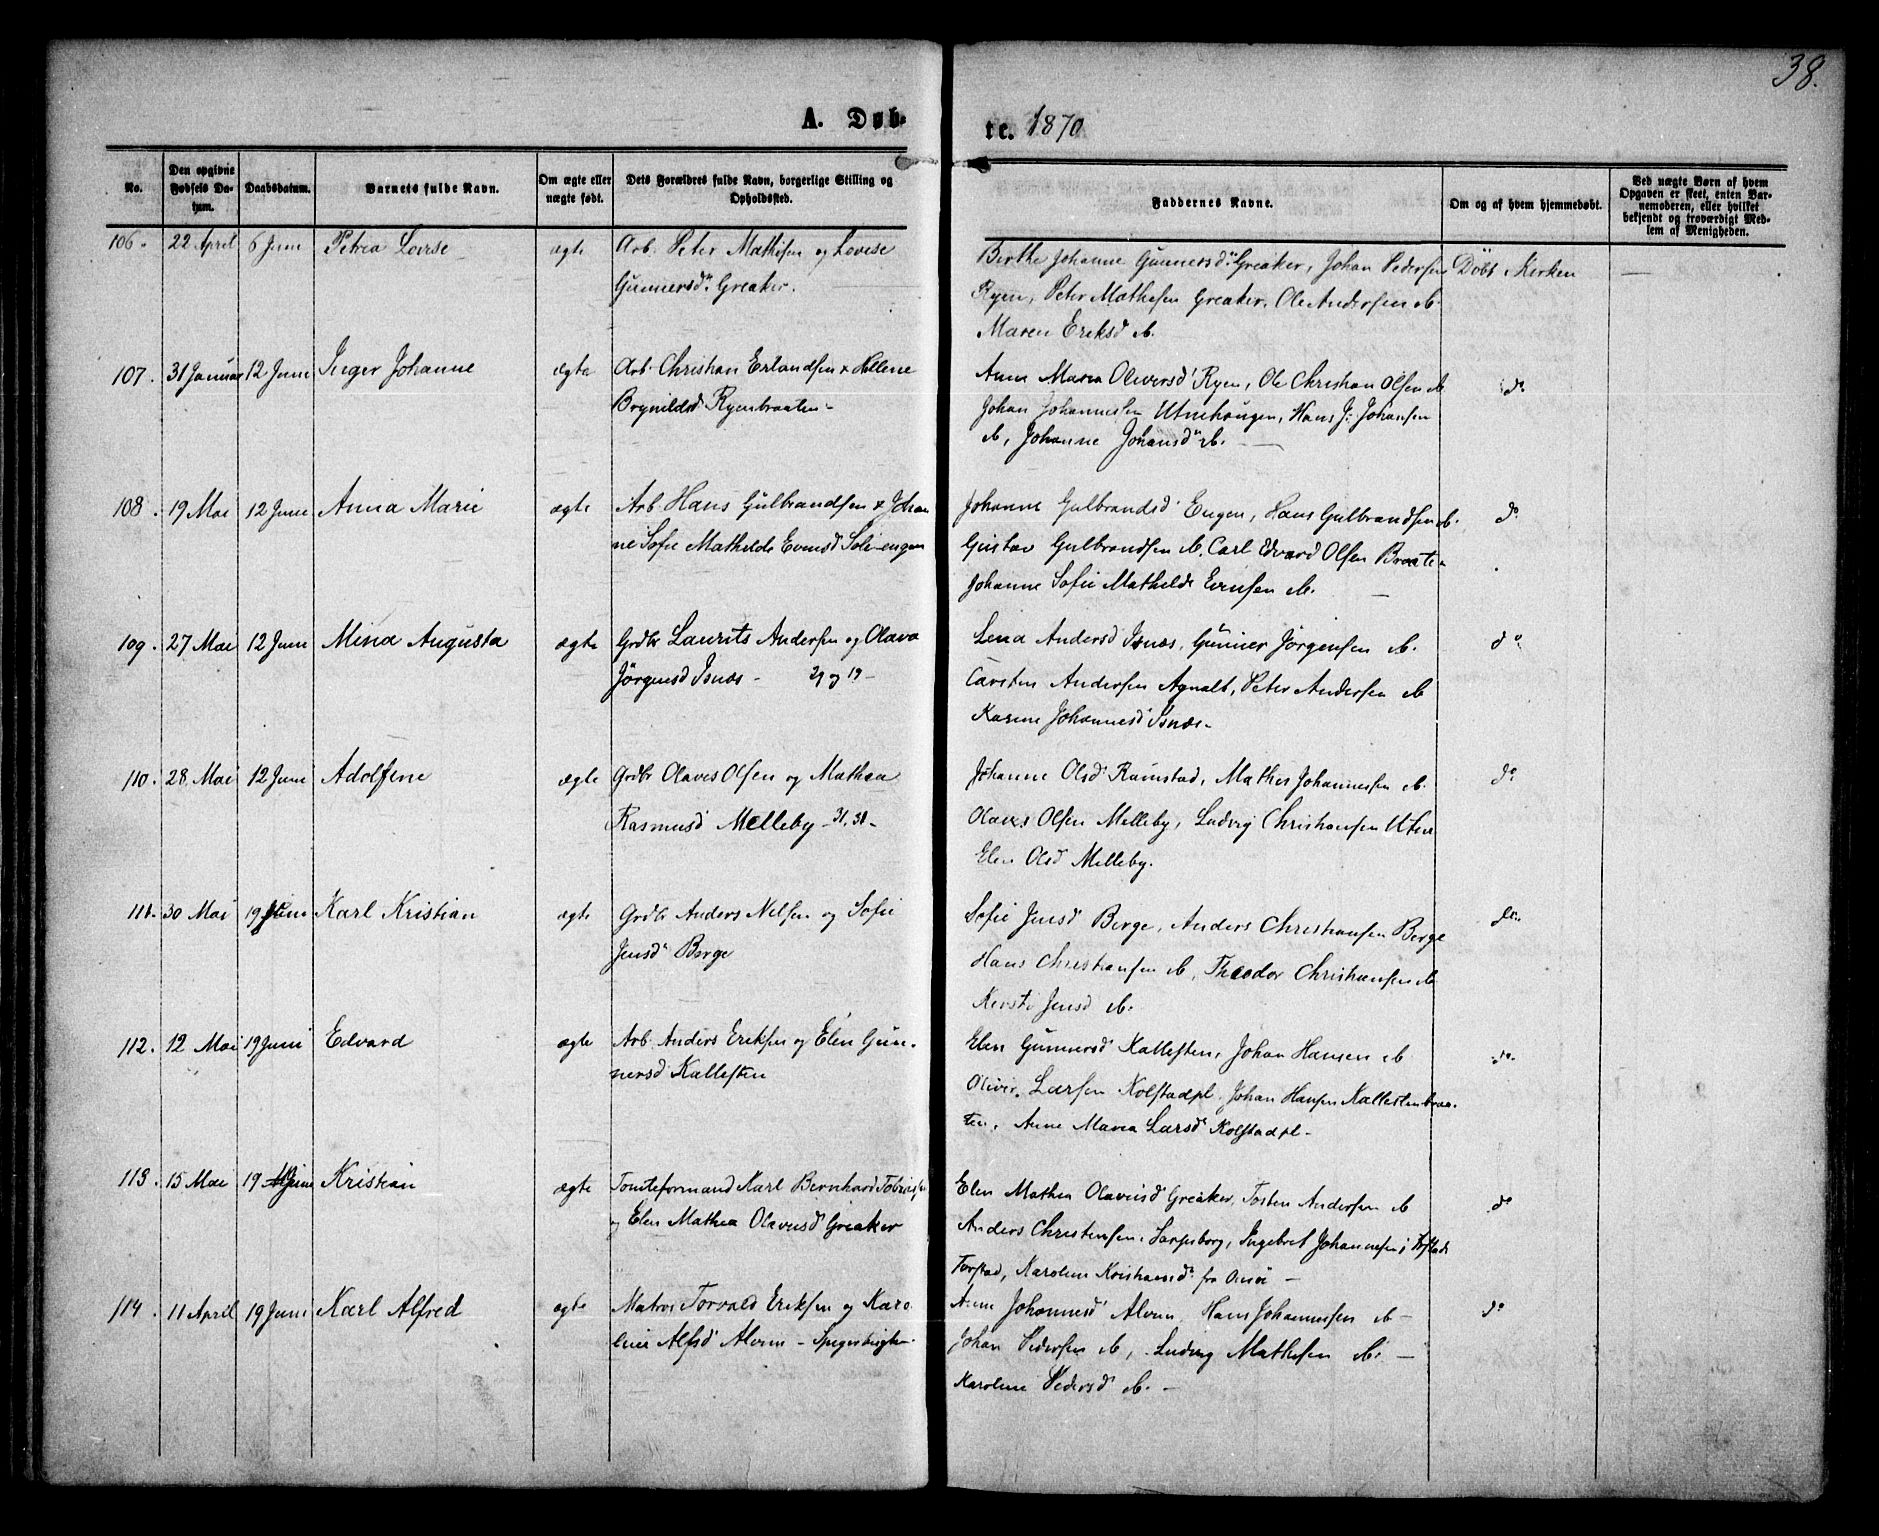 38.
A. Døb-
te. 1870
No.
Den opgivne Fødsels Datum.
Daabsdatum.
Barnets fulde Navn.
Om ægte eller uægte født.
Dets Forældres fulde Navn, borgerlige Stilling og Opholdssted.
Faddernes Navne.
Om og af hvem hjemmedøbt.
Ved uægte Børn af hvem Opgaven er skeet, enten Barnemoderen, eller hvilket bekjendt og troværdigt Medlem af Menigheden.
106. 22 April 6 Juni Petrea Lovise ægte Arb. Peter Mathisen og Lovise
Gunnersd. Greaker.
Berthe Johanne Gunnersd. Greaker, Johan Pedersen Döbt i Kirken
Ryen, Peter Mathesen Greaker, Ole Andersen ib.
Maren Eriksd ib.
107. 31 Januar 12 Juni Inger Johanne ægte Arb. Christian Erlandsen & Hellene
Brynildsd Ryenbraaten -
Anne Maria Oliversd Ryen, Ole Christian Olsen ib do
Johan Johannessen Utnehaugen, Hans J. Johansen
ib, Johanne Johansd ib.
108. 19 Mai 12 Juni Anna Marie ægte Arb. Hans Gulbrandsen & Johan
ne Sofie Mathilde Evensd Soli-engen
Johanne Gulbrandsd Engen, Hans Gulbrandsen ib. do
Gustav Gulbrandsen ib, Carl Edvard Olsen Braate-
Johanne Sofie Mathilde Evensen ib.
109. 27 Mai 12 Juni Mina Augusta ægte Grdbr Laurits Andersen og Olava
Jörgensd Isnæs - 29 og 19 -
Lena Andersd Isnæs, Gunner Jörgensen ib. do
Carsten Andersen Agnalt, Peter Andersen ib
Karine Johannesd Isnæs -
110. 28 Mai 12 Juni Adolfine ægte Grdbr Olaves Olsen og Mathea
Rasmusd Melleby - 31, 31 -
Johanne Olsd Ramstad, Mathis Johannesen ib. do
Olaves Olsen Melleby, Ludvig Christiansen Utne
Elen Olsd Melleby.
111. 30 Mai 19 Juni Karl Kristian ægte Grdbr Anders Nilsen og Sofie
Jensd Berge
Sofie Jensd Berge, Anders Christiansen Berge do
Hans Christiansen ib, Theodor Christiansen ib
Kersti Jensd ib.
112. 12 Mai 19 Juni Edvard ægte Arb. Anders Eriksen og Elen Gun-
nersd Kallesten
Elen Gunnersd Kallesten, Johan Hansen ib do
Oliver Larsen Kolstadpl, Johan Hansen Kallestenbraa-
ten, Anne Maria Larsd Kolstadpl -
113. 15 Mai 19 Juni Kristian ægte Tomteformand Karl Bernhard Tobiasen
og Elen Mathea Olaveisd Greaker
Elen Mathea Olaveisd Greaker, Tosten Andersen ib do
Anders Christensen, Sarpsborg, Ingebret Johannesen,
Torstad, Karoline Kristiansd fra Onsö -
114. 11 April 19 Juni Karl Alfred ægte Matros Torvald Eriksen og Karo-
line Alfsd Alvim -
Anne Johannesd Alvim, Hans Johannessen ib - do
Johan Pedersen ib, Ludvig Mathesen ib. -
Karoline Pedersd ib. -